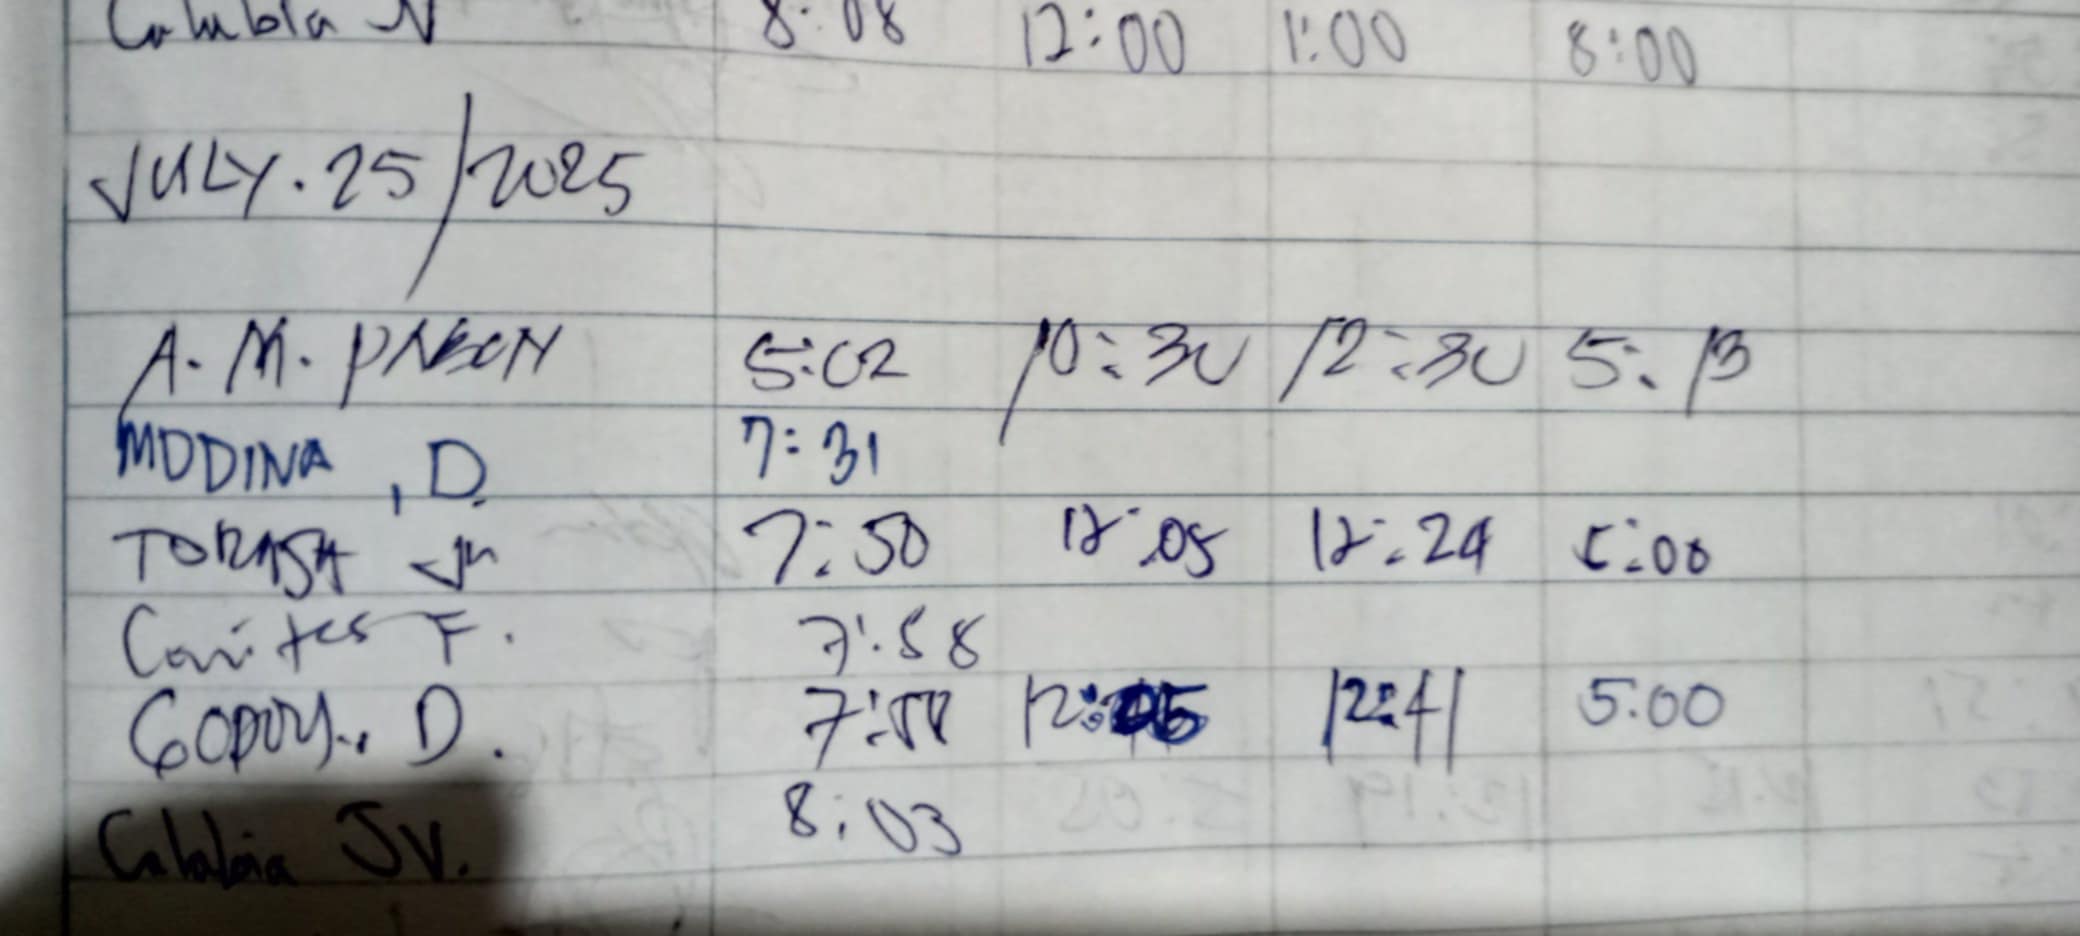 8:08 12:00 1:00 8:00
JULY.25/2025
A.M. 5:02 10:30 12:30 5:13
MODINA, D. 7:31
TORASA Jr 7:50 12:05 12:24 5:00
F. 7:58
GODOY., D. 7:58 12:05 12:41 5:00
JV. 8:03